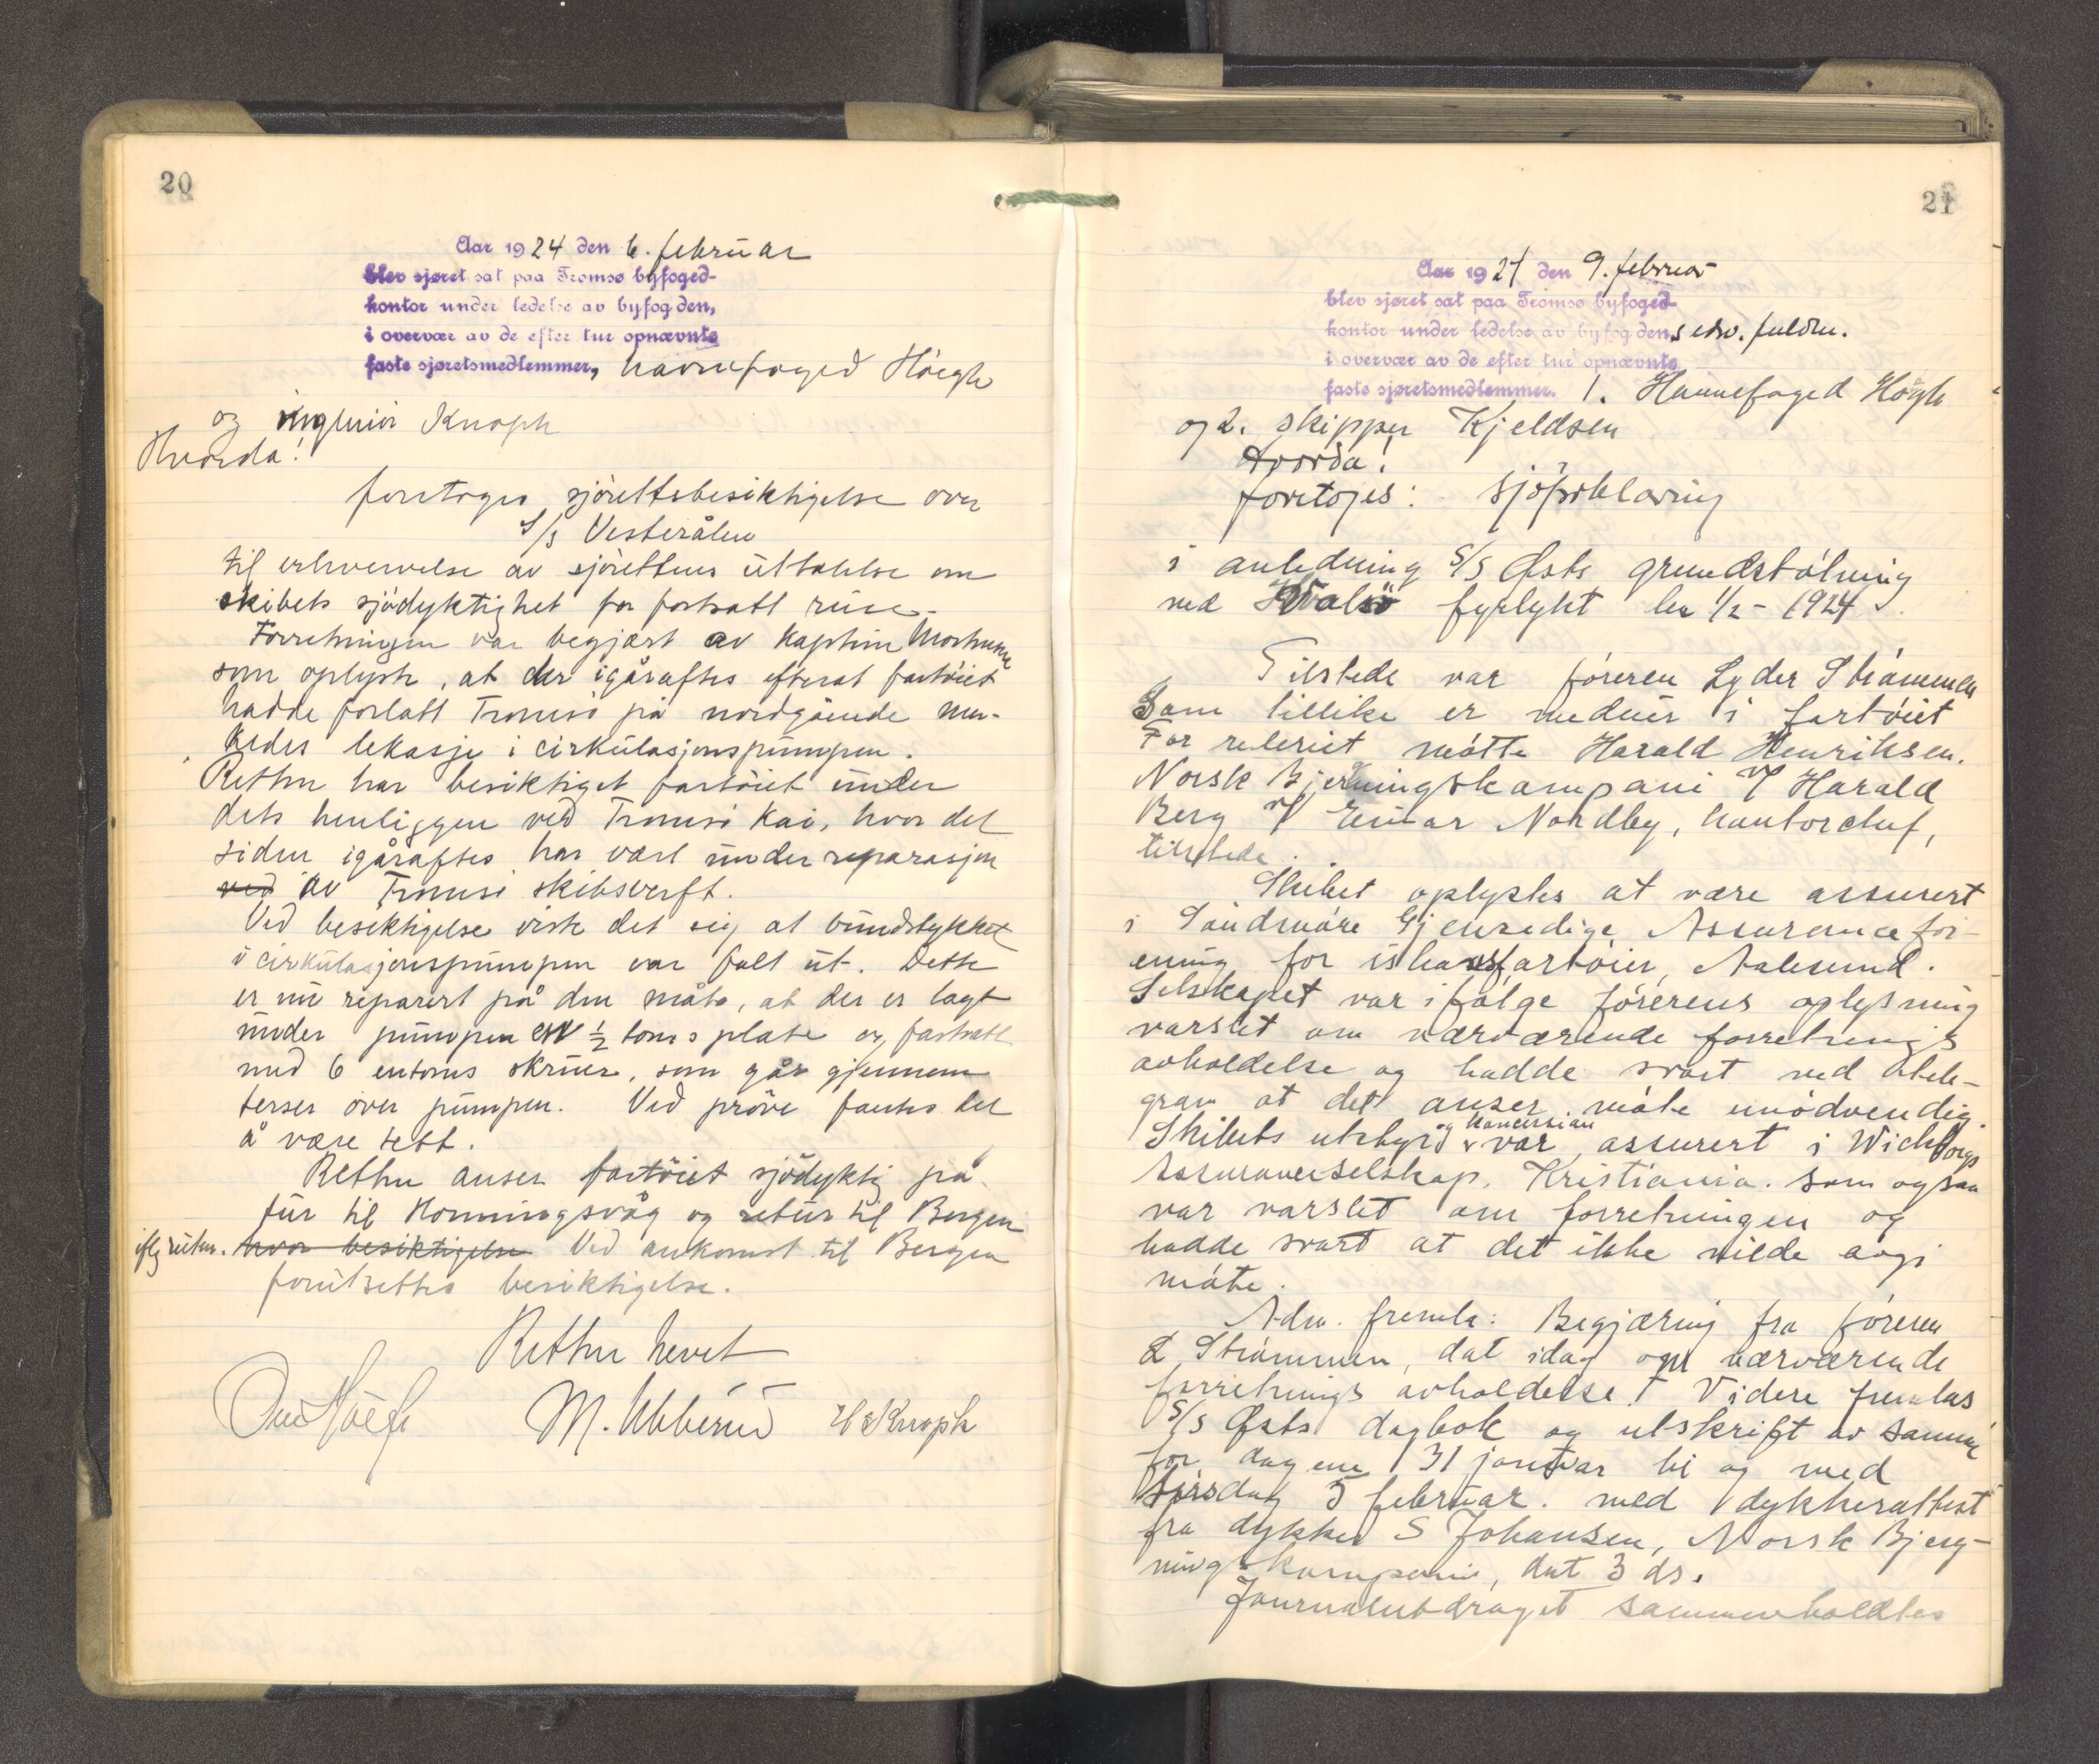 20
Aar 1924 den 6. februar
blev sjøret sat paa Tromsø byfoged-
kontor under ledelse av byfogden,
i overvær av de efter tur opnævnte
faste sjøretsmedlemmer, havnefoged Höegh
og ingeniör Knoph
Hvorda!
foretoges sjörettsbesiktigelse over
S/S Vesterålen
til erhvervelse av sjörettens uttalelse om
skibets sjödyktighet for fortsatt reise.
Forretningen var begjært av kaptein Mortensen
som oplyste, at der igåraftes efterat fartöiet
hadde forlatt Tromsö på nordgående mer-
kedes lekasje i cirkulasjonspumpen.
Retten har besiktiget fartöiet under
dets henliggen ved Tromsö kai, hvor det
siden igåraftes har vært under reparasjon
ved av Tromsö skibsverft.
Ved besiktigelse viste det sig at bundstykket
i cirkulasjonspumpen var falt ut. Dette
er nu reparert på den måte, at der er lagt
under pumpen en ½ toms plate og fastsatt
med 6 entoms skruer, som går gjennem
terser over pumpen. Ved pröve fantes det
å være tett.
Retten anser fartöiet sjödyktig på
tur til Honningsvåg og retur til Bergen
iflg ruten. hvor besiktigelse Ved ankomst til Bergen
forutsettes besiktigelse.
Retten hevet
Höegh M. Ubberud H Knoph
21
Aar 1924 den 9. februar
blev sjøret sat paa Tromsø byfoged-
kontor under ledelse av byfogdens edsv. fuldm.
i overvær av de efter tur opnævnte
faste sjøretsmedlemmer. 1. Havnefoged Högh
og 2. skipper Kjeldsen
Hvorda!
foretoges: sjöforklaring
i anledning S/S Østs grundstötning
ved Kvalsö fyrlykt den 1/2 - 1924.
Tilstede var föreren Lyder Strömmen
som tillike er medeier i fartöiet
For rederiet mötte Harald Henriksen.
Norsk Bjerningskompani v/ Harald
Berg v/ Einar Nordby, kontorchef,
tilstede.
Skibet oplystes at være assurert
i Söndmöre Gjensidige Assurancefor-
ening for ishavsfartöier, Aalesund.
Selskapet var ifölge förerens oplysning
varslet om nærværende forretnings
avholdelse og hadde svart ved tele-
gram at det anser möte unödvendig.
Skibets utstyr og Koncession var assurert i Wichborgs
Assuranceselskap, Kristiania. som ogsaa
var varslet om forretningen og
hadde svart at det ikke vilde avgi
möte.
Adm. fremla: Begjæring fra föreren
L Strömmen, dat idag om nærværende
forretnings avholdelse. Videre fremlas
S/S Østs dagbok og utskrift av samme
for dagene 31 januar til og med
tirsdag 5 februar. med dykkerattest
fra dykker S Johansen, Norsk Bjerg-
ningskompani, dat 3 ds.
Journalutdraget sammenholdtes